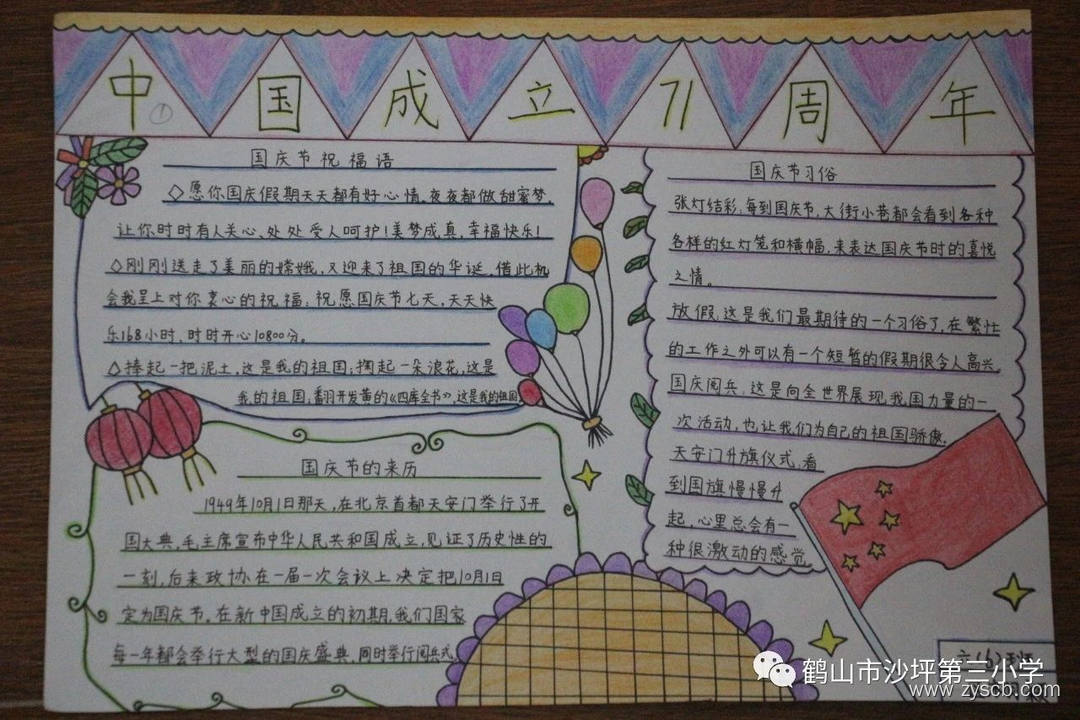 中国成立71周年
①
国庆节祝福语
◇愿你国庆假期天天都有好心情,夜夜都做甜蜜梦,
让你时时有人关心、处处受人呵护!美梦成真,幸福快乐!
◇刚刚送走了美丽的嫦娥,又迎来了祖国的华诞,借此机
会我呈上对你衷心的祝福:祝愿国庆节七天,天天快
乐168小时,时时开心10800分。
◇捧起一把泥土,这是我的祖国;掬起一朵浪花,这是
我的祖国;翻开发黄的《四库全书》,这是我的祖国
国庆节的来历
1949年10月1日那天,在北京首都天安门举行了开
国大典,毛主席宣布中华人民共和国成立,见证了历史性的
一刻,后来政协在一届一次会议上决定把10月1日
定为国庆节。在新中国成立的初期,我们国家
每一年都会举行大型的国庆盛典,同时举行阅兵式
国庆节习俗
张灯结彩:每到国庆节,大街小巷都会看到各种
各样的红灯笼和横幅,来表达国庆节时的喜悦
之情。
放假:这是我们最期待的一个习俗了,在繁忙
的工作之外可以有一个短暂的假期很令人高兴,
国庆阅兵:这是向全世界展现我国力量的一
次活动,也让我们为自己的祖国骄傲.
天安门升旗仪式,看
到国旗慢慢升
起,心里总会有一
种很激动的感觉
六(6)班
鹤山市沙坪第三小学
www.zyscb.com